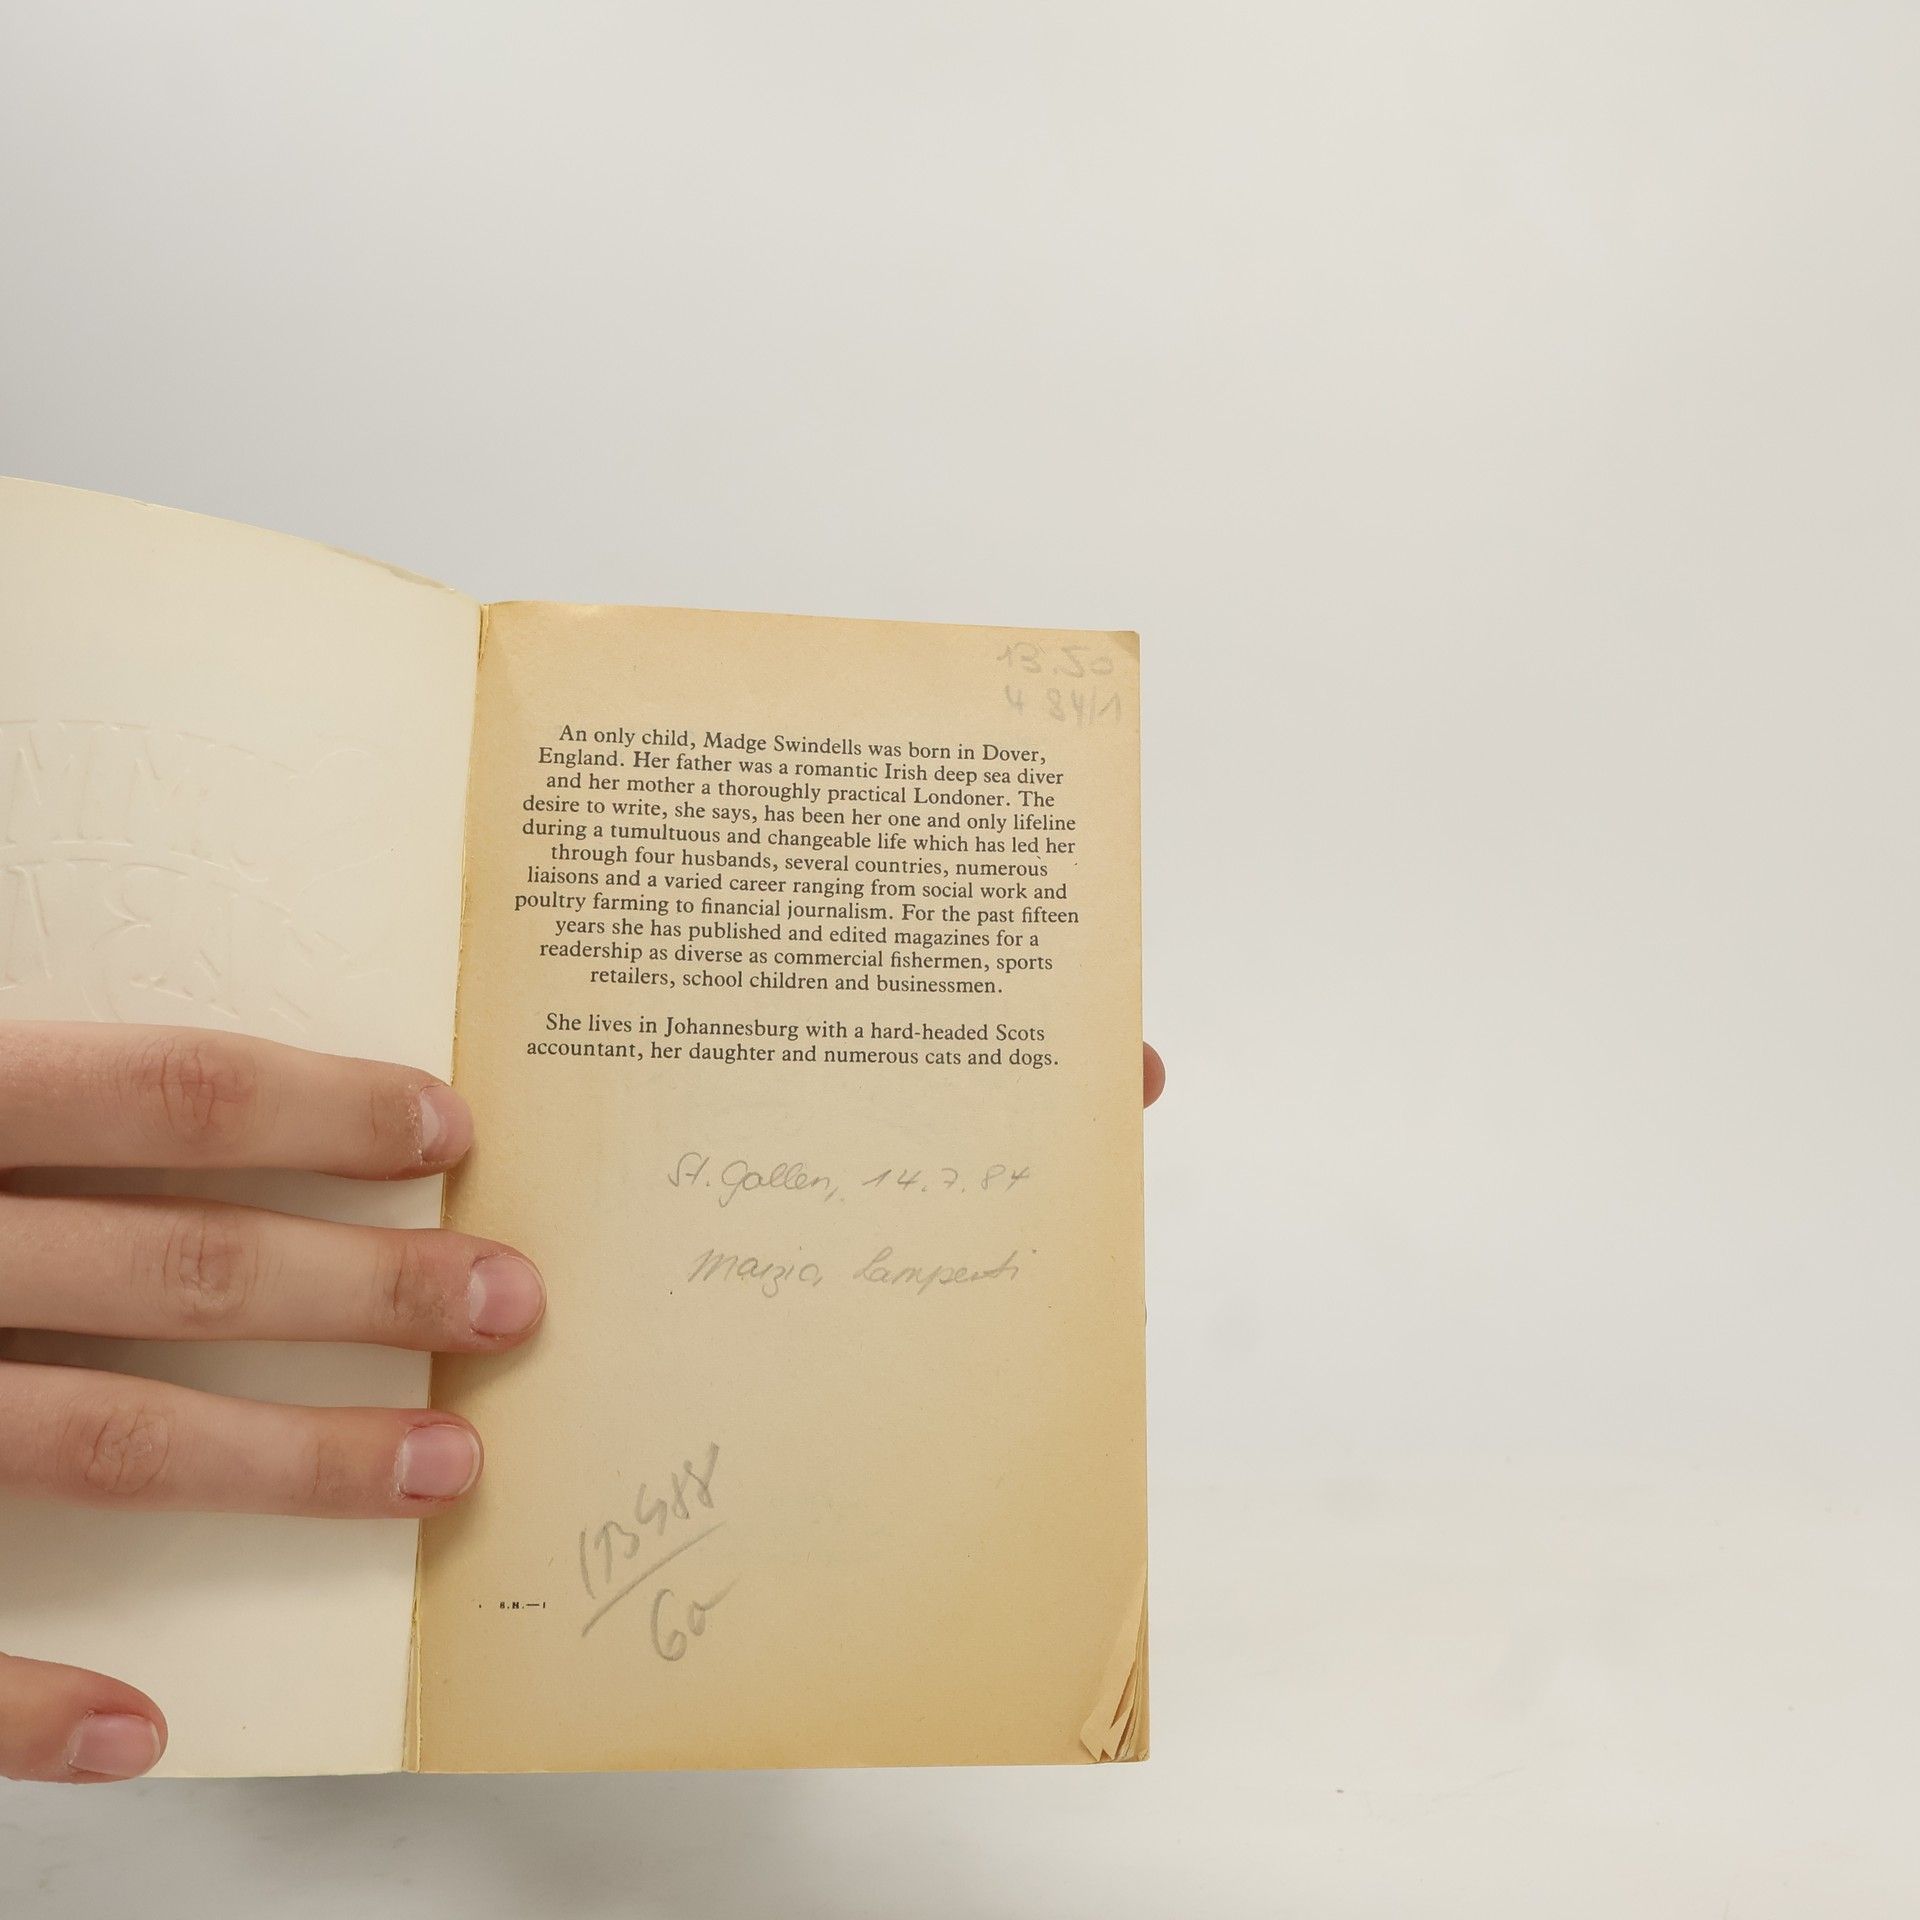 13.50
4 84/1
An only child, Madge Swindells was born in Dover,
England. Her father was a romantic Irish deep sea diver
and her mother a thoroughly practical Londoner. The
desire to write, she says, has been her one and only lifeline
during a tumultuous and changeable life which has led her
through four husbands, several countries, numerous
liaisons and a varied career ranging from social work and
poultry farming to financial journalism. For the past fifteen
years she has published and edited magazines for a
readership as diverse as commercial fishermen, sports
retailers, school children and businessmen.
She lives in Johannesburg with a hard-headed Scots
accountant, her daughter and numerous cats and dogs.
St. Gallen, 14.7.84